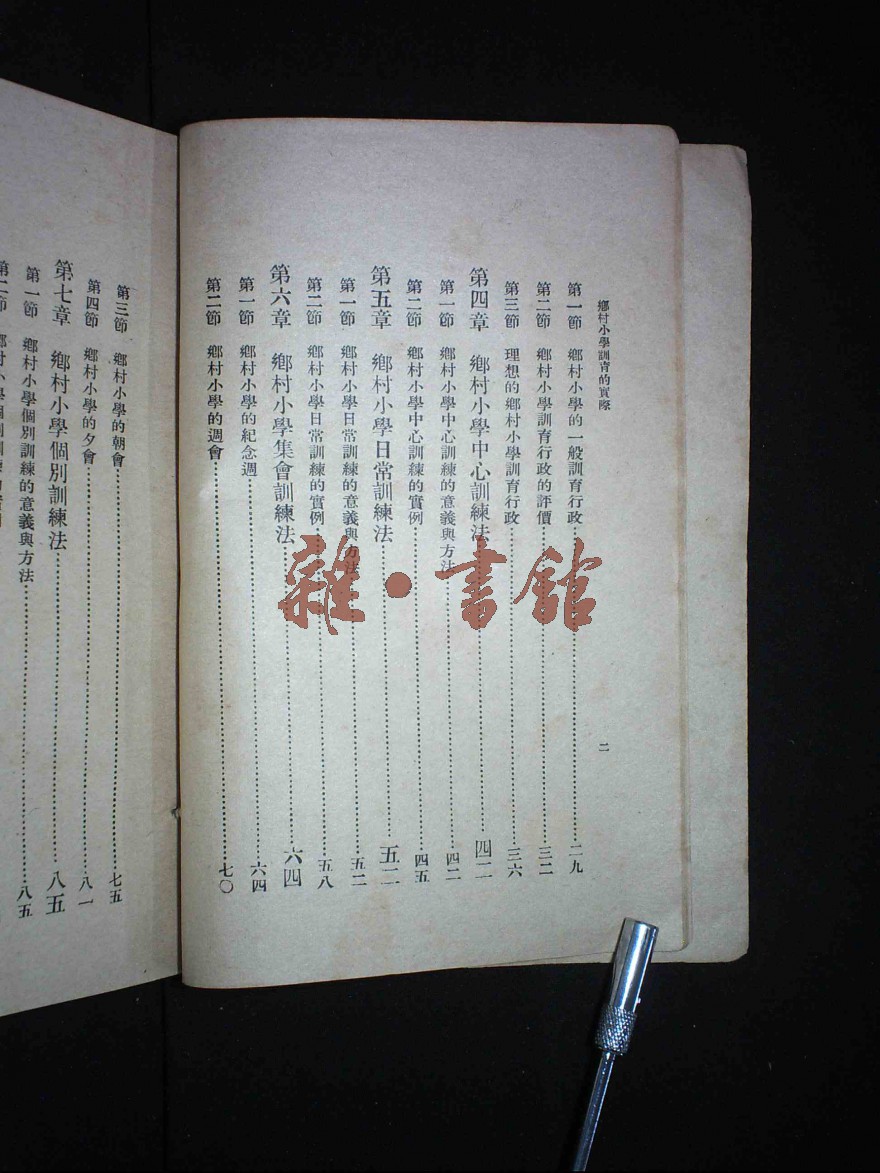 鄉村小學訓育的實際
二
第一節 鄉村小學的一般訓育行政……二九
第二節 鄉村小學訓育行政的評價……三二
第三節 理想的鄉村小學訓育行政……三六
第四章 鄉村小學中心訓練法……四二
第一節 鄉村小學中心訓練的意義與方法……四二
第二節 鄉村小學中心訓練的實例……四五
第五章 鄉村小學日常訓練法……五二
第一節 鄉村小學日常訓練的意義與方法……五二
第二節 鄉村小學日常訓練的實例……五八
第六章 鄉村小學集會訓練法……六四
第一節 鄉村小學的紀念週……六四
第二節 鄉村小學的週會……七〇
第三節 鄉村小學的朝會……七五
第四節 鄉村小學的夕會……八一
第七章 鄉村小學個別訓練法……八五
第一節 鄉村小學個別訓練的意義與方法……八五
第二節
雜·書館